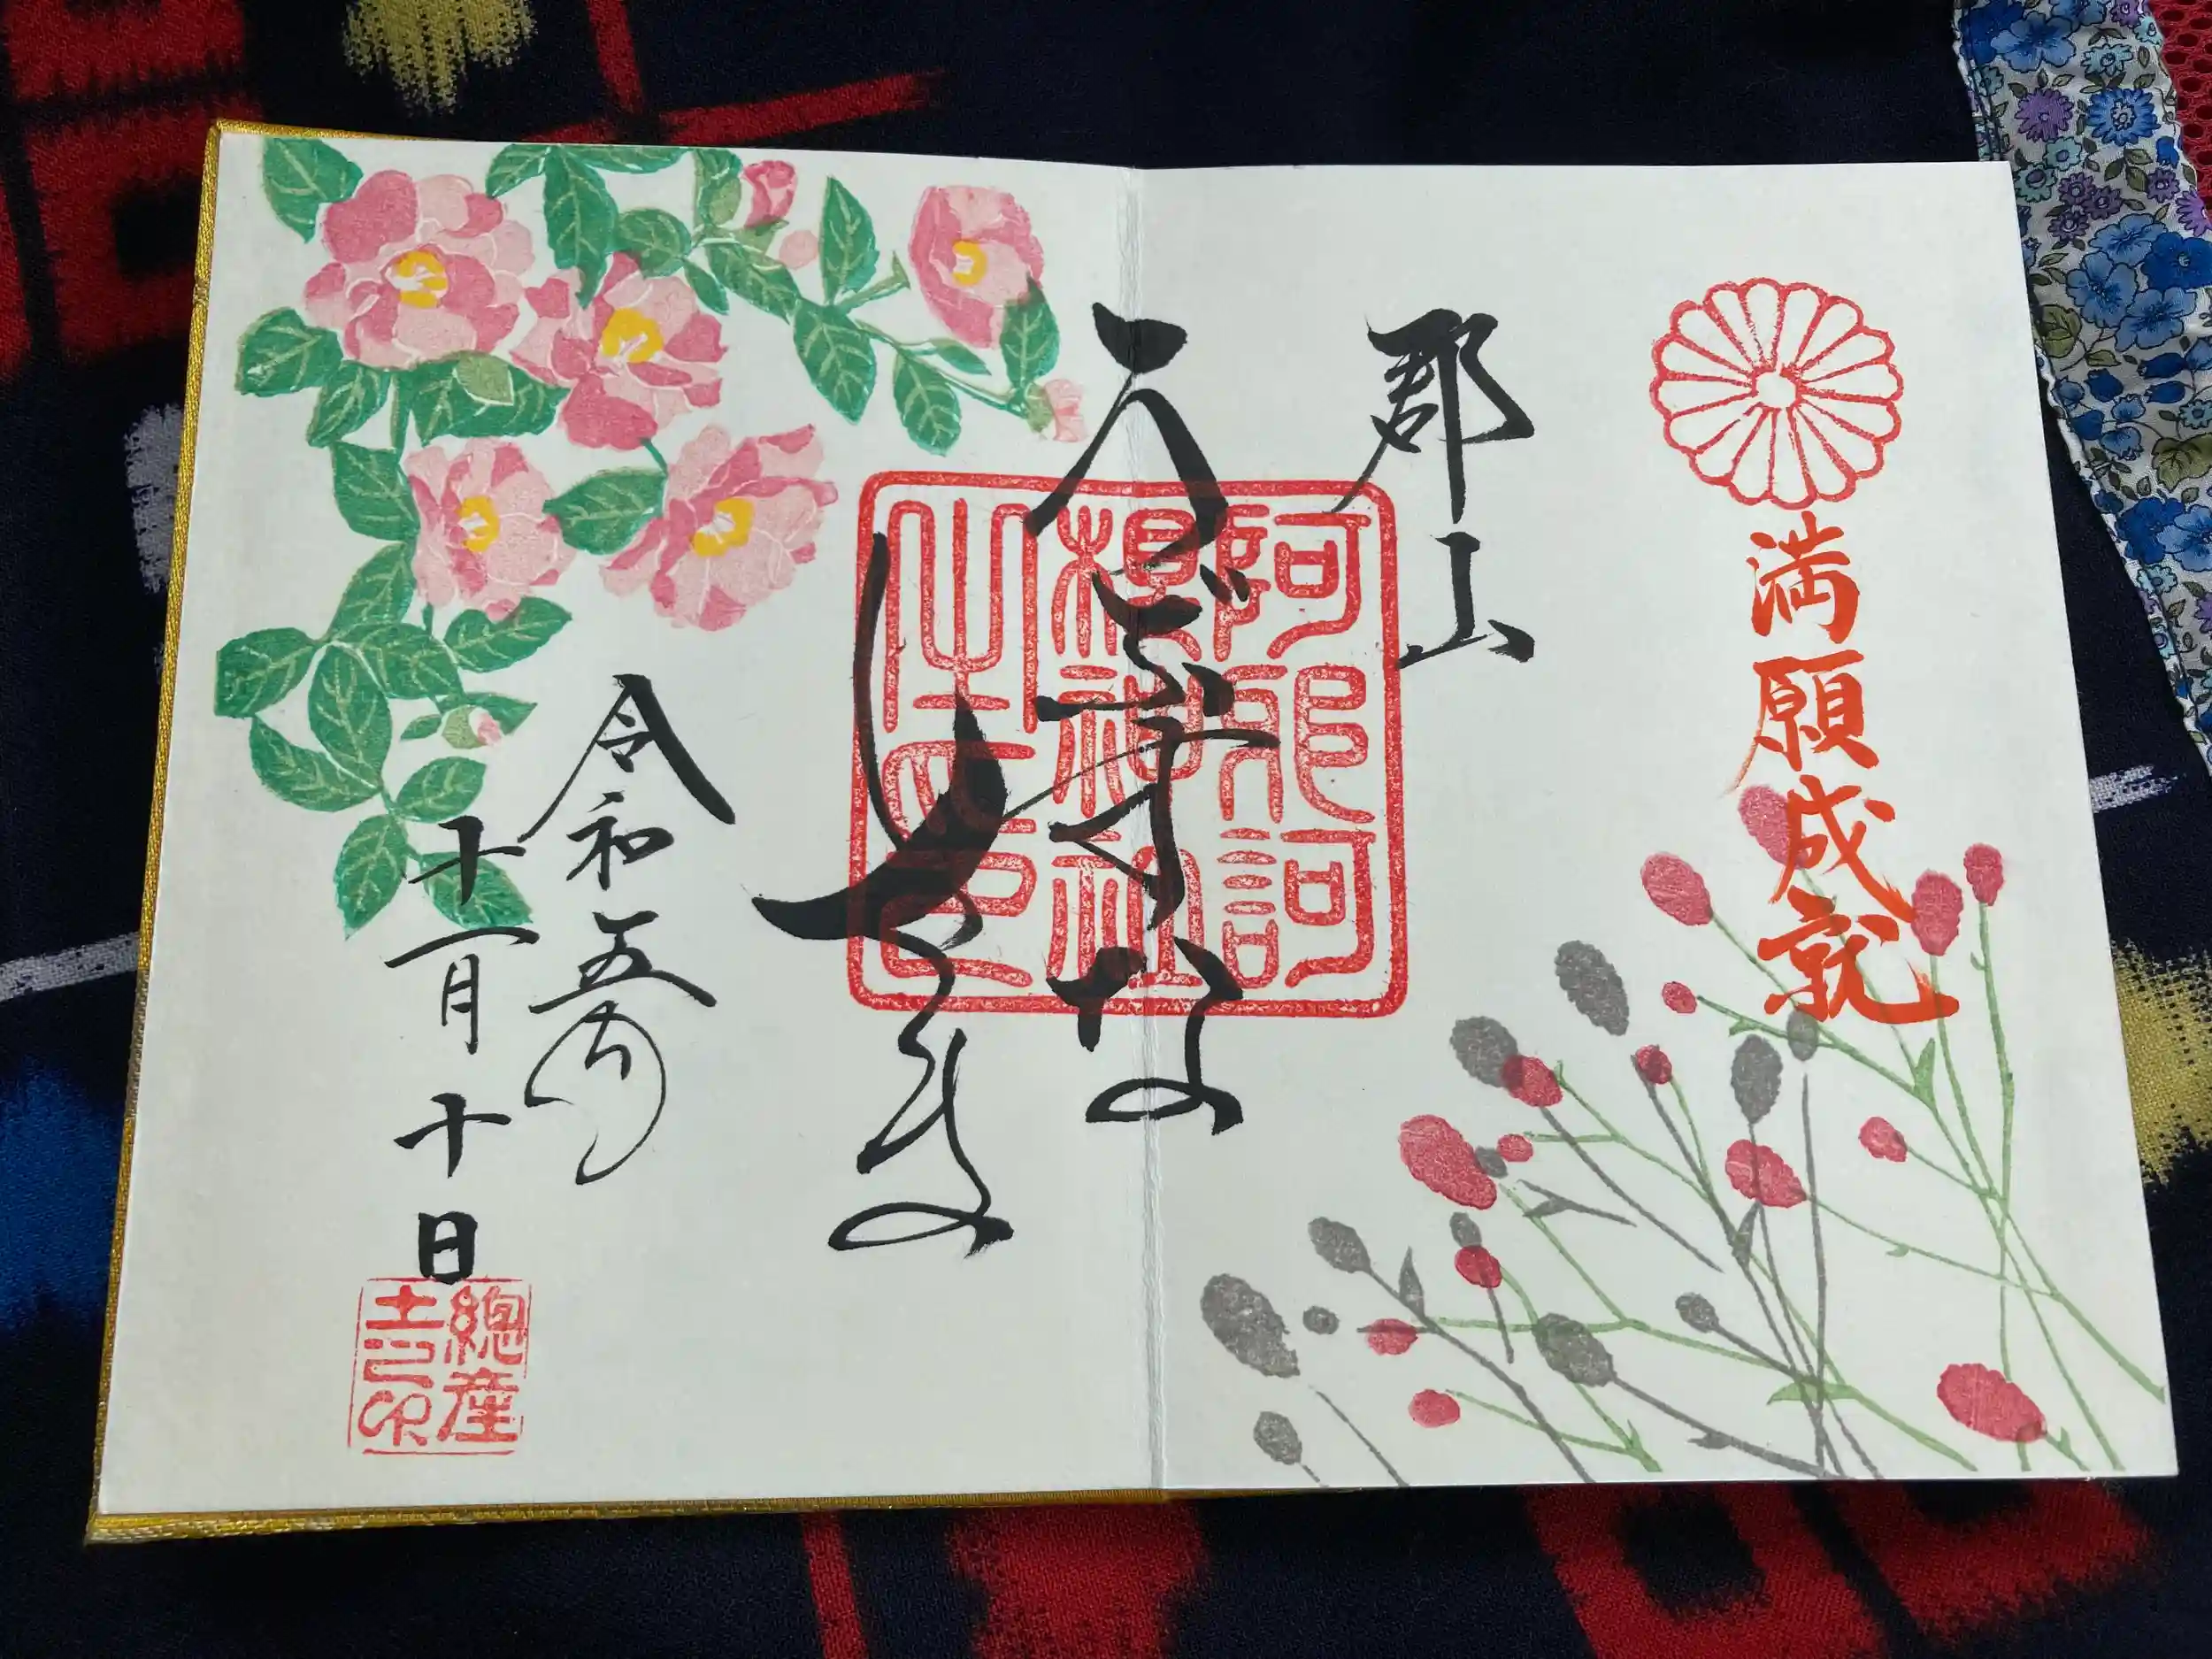 満願成就
郡山
うぶすな
阿邪訶
根神社
之印
令和五
十一月十日
總産
土之印